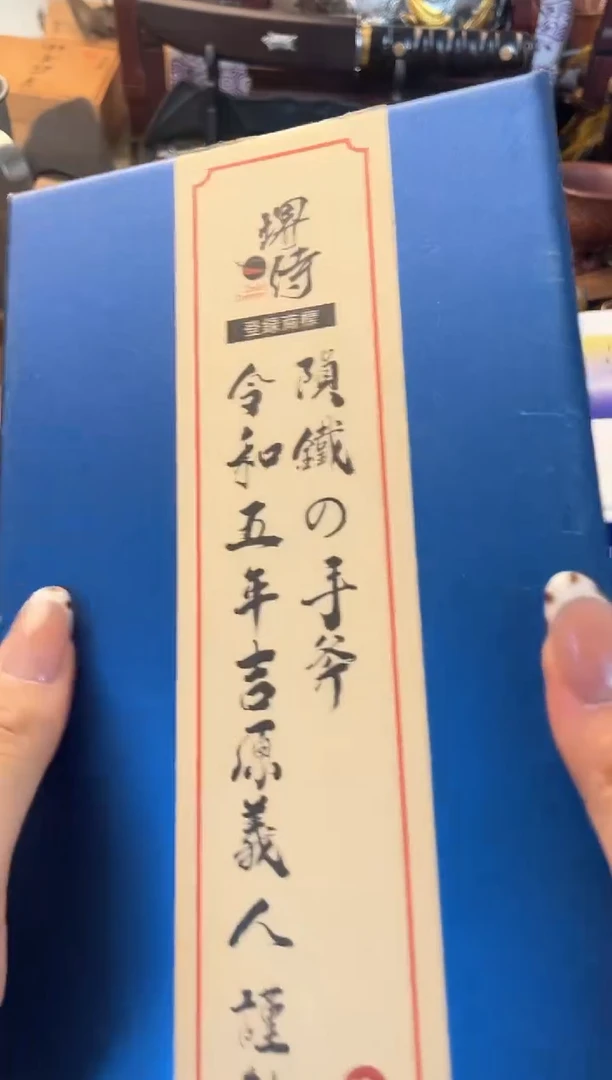 堺侍
登録商標
隕鐵の手斧
令和五年吉原義人謹